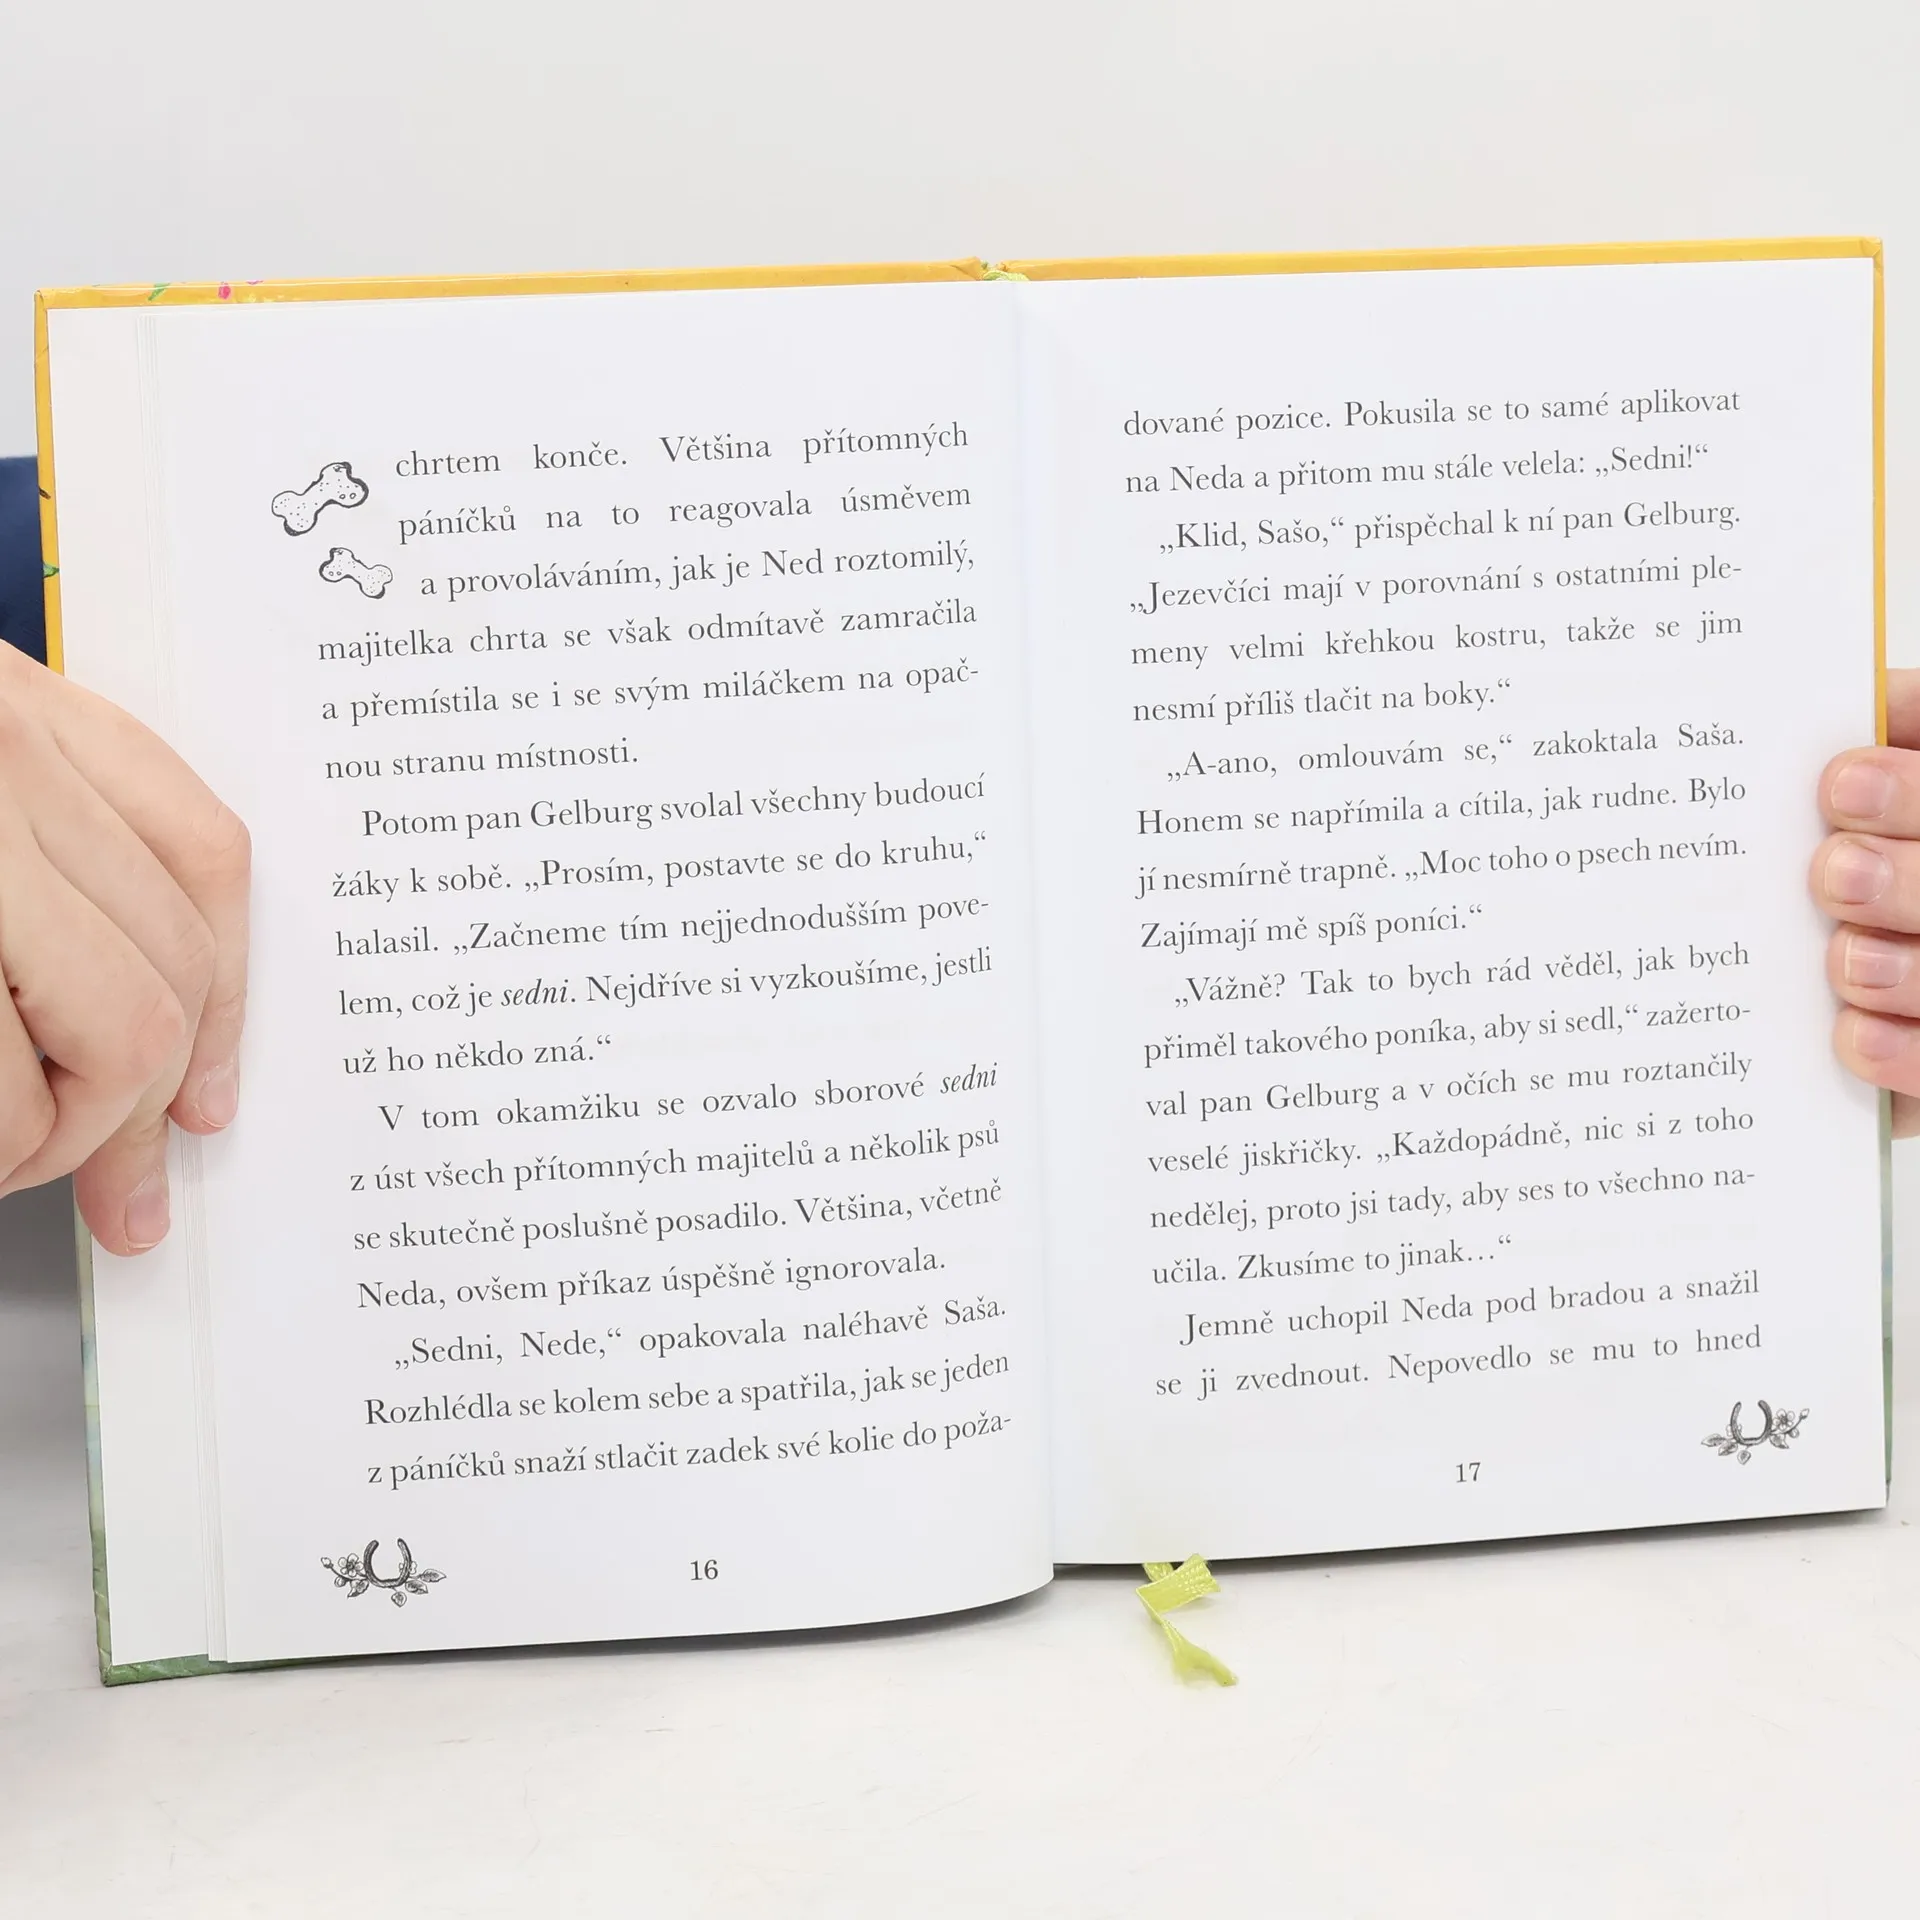 chrtem konče. Většina přítomných
páníčků na to reagovala úsměvem
a provoláváním, jak je Ned roztomilý,
majitelka chrta se však odmítavě zamračila
a přemístila se i se svým miláčkem na opač-
nou stranu místnosti.
Potom pan Gelburg svolal všechny budoucí
žáky k sobě. „Prosím, postavte se do kruhu,“
halasil. „Začneme tím nejjednodušším pove-
lem, což je sedni. Nejdříve si vyzkoušíme, jestli
už ho někdo zná.“
V tom okamžiku se ozvalo sborové sedni
z úst všech přítomných majitelů a několik psů
se skutečně poslušně posadilo. Většina, včetně
Neda, ovšem příkaz úspěšně ignorovala.
„Sedni, Nede,“ opakovala naléhavě Saša.
Rozhlédla se kolem sebe a spatřila, jak se jeden
z páníčků snaží stlačit zadek své kolie do poža-
16
dované pozice. Pokusila se to samé aplikovat
na Neda a přitom mu stále velela: „Sedni!“
„Klid, Sašo,“ přispěchal k ní pan Gelburg.
„Jezevčíci mají v porovnání s ostatními ple-
meny velmi křehkou kostru, takže se jim
nesmí příliš tlačit na boky.“
„A-ano, omlouvám se,“ zakoktala Saša.
Honem se napřímila a cítila, jak rudne. Bylo
jí nesmírně trapně. „Moc toho o psech nevím.
Zajímají mě spíš poníci.“
„Vážně? Tak to bych rád věděl, jak bych
přiměl takového poníka, aby si sedl,“ zažerto-
val pan Gelburg a v očích se mu roztančily
veselé jiskřičky. „Každopádně, nic si z toho
nedělej, proto jsi tady, aby ses to všechno na-
učila. Zkusíme to jinak…“
Jemně uchopil Neda pod bradou a snažil
se ji zvednout. Nepovedlo se mu to hned
17